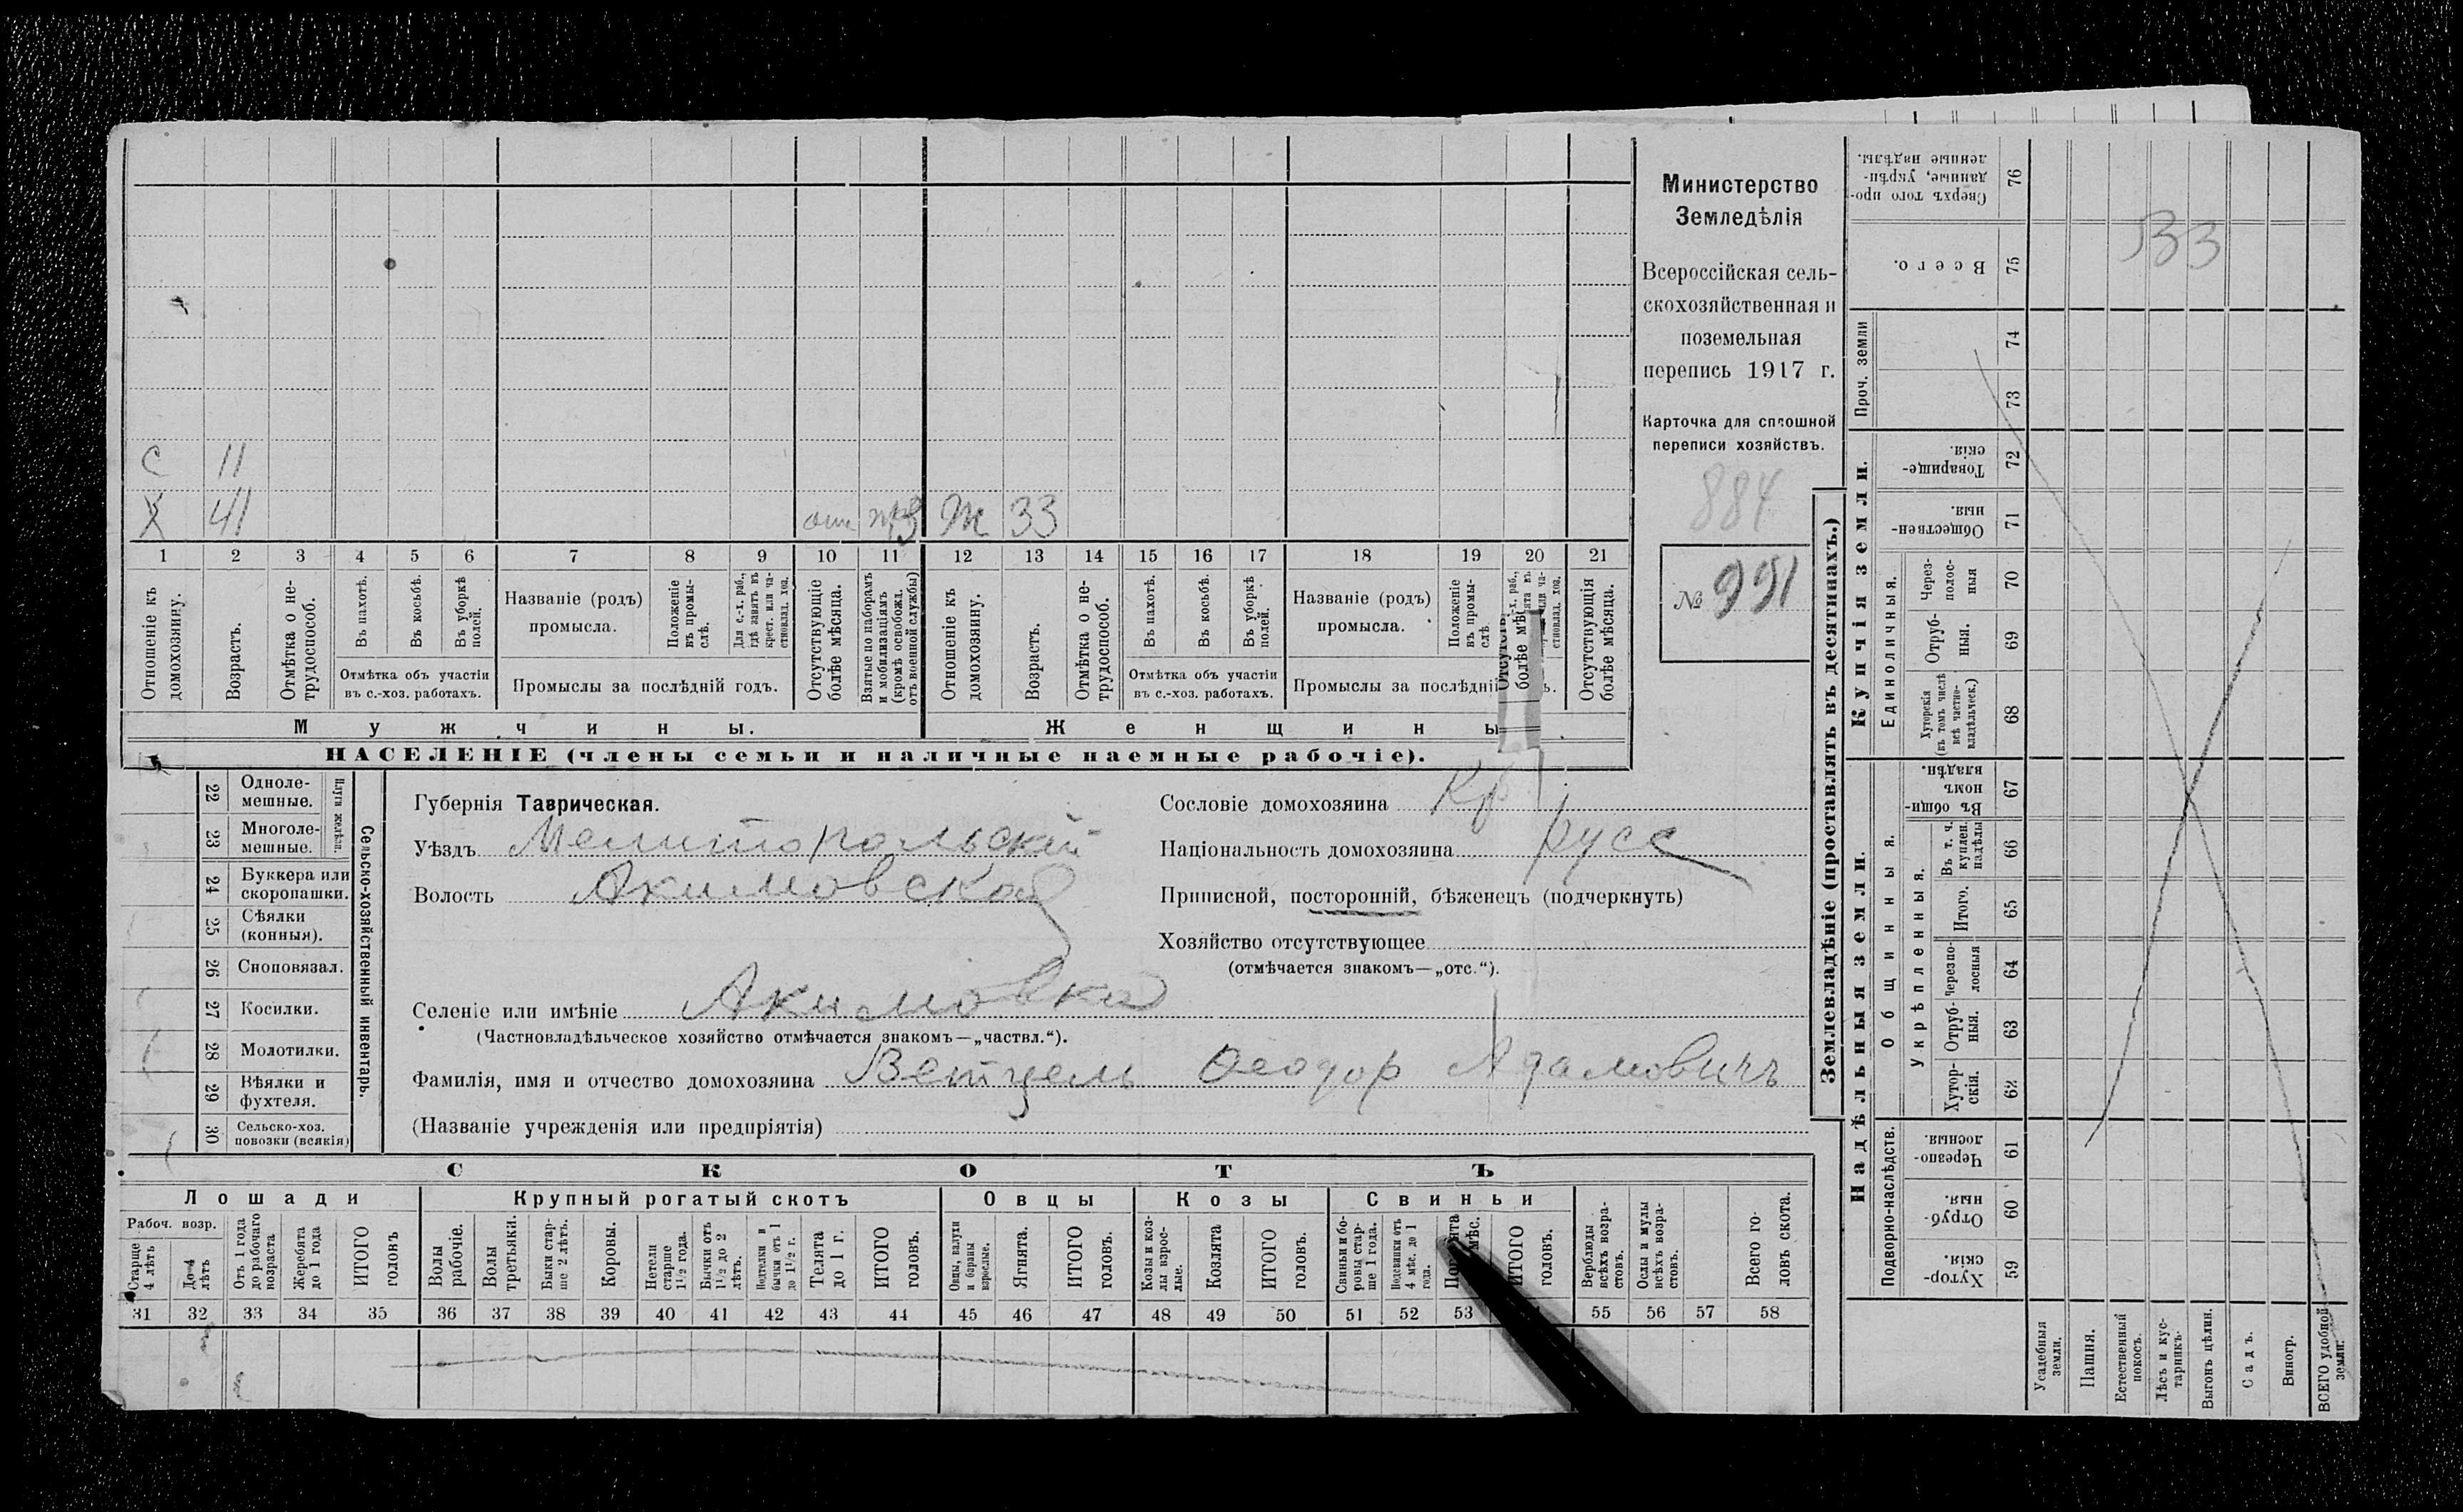 С 11
Х 41 отс Ж 33
1 2 3 4 5 6 7 8 9 10 11 12 13 14 15 16 17 18 19 20 21
Отношеніе къ домохозяину.
Возрастъ.
Отмѣтка о не-
трудоспособ.
Въ пахотѣ.
Въ косьбѣ.
Въ уборкѣ
полей.
Отмѣтка объ участіи
въ с.-хоз. работахъ.
Названіе (родъ)
промысла.
Положеніе
въ промы-
слѣ.
Для с.-х. раб.,
гдѣ занятъ въ
крест. или ча-
стновлад. хоз.
Промыслы за послѣдній годъ.
Отсутствующіе
болѣе мѣсяца.
Взятые по наборамъ
и мобилизаціямъ
(кромѣ освобожд.
отъ военной службы)
Отношеніе къ
домохозяину.
Возрастъ.
Отмѣтка о не-
трудоспособ.
Въ пахотѣ.
Въ косьбѣ.
Въ уборкѣ
полей.
Отмѣтка объ участіи
въ с.-хоз. работахъ.
Названіе (родъ)
промысла.
Положеніе
въ промы-
слѣ.
Промыслы за послѣдній
Отсутствующія
болѣе мѣсяца.
Мужчины.
Женщины
НАСЕЛЕНІЕ (члены семьи и наличные наемные рабочіе).
Министерство
Земледѣлія
Всероссійская сель-
скохозяйственная и
поземельная
перепись 1917 г.
Карточка для сплошной
переписи хозяйствъ.
884
№ 991
22 Одноле-
мешные.
23 Многоле-
мешные.
Плуги желѣзн.
24 Буккера или
скоропашки.
25 Сѣялки
(конныя).
26 Сноповязал.
27 Косилки.
28 Молотилки.
29 Вѣялки и
фухтеля.
30 Сельско-хоз.
повозки (всякія)
Сельско-хозяйственный инвентарь.
Губернія Таврическая.
Уѣздъ Мелитопольскій
Волость Акимовская
Селеніе или имѣніе Акимовка
(Частновладѣльческое хозяйство отмѣчается знакомъ—„частвл.“).
Фамилія, имя и отчество домохозяина Ветцель Ѳеодор Адамовичъ
(Названіе учрежденія или предпріятія)
Сословіе домохозяина Кр
Національность домохозяина русс
Приписной, посторонній, бѣженецъ (подчеркнуть)
Хозяйство отсутствующее
(отмѣчается знакомъ—„отс.“).
СКОТЪ
Лошади
Рабоч. возр.
Старше
4 лѣтъ
До 4
лѣтъ
Отъ 1 года
до рабочаго
возраста
Жеребята
до 1 года
ИТОГО
головъ
Крупный рогатый скотъ
Волы
рабочіе.
Волы
третьяки.
Быки стар-
ше 2 лѣтъ.
Коровы.
Нетели
старше
1½ года.
Бычки отъ
1½ до 2
лѣтъ.
Подтелки и
бычки отъ 1
до 1½ г.
Телята
до 1 г.
ИТОГО
головъ.
Овцы
Овцы, валухи
и бараны
взрослые.
Ягнята.
ИТОГО
головъ.
Козы
Козы и коз-
лы взрос-
лые.
Козлята
ИТОГО
головъ.
Свиньи
Свиньи и бо-
ровы стар-
ше 1 года.
Подсвинки отъ
4 мѣс. до 1
года.
мѣс.
ИТОГО
головъ.
Верблюды
всѣхъ возра-
стовъ.
Ослы и мулы
всѣхъ возра-
стовъ.
Всего го-
ловъ скота.
31 32 33 34 35 36 37 38 39 40 41 42 43 44 45 46 47 48 49 50 51 52 53 55 56 57 58
Землевладѣніе (проставлять въ десятинахъ.)
Купчія земли.
Надѣльныя земли.
Сверхъ того про-
данные, укрѣп-
ленные надѣлы.
76
33
Всего.
75
Проч. земли
74
73
Товарище-
скія.
72
Обществен-
ныя.
71
Единоличныя.
Через-
полос-
ныя
70
Отруб-
ныя.
69
Хуторскія
(въ томъ числѣ
всѣ частно-
владѣльческ.)
68
Общинныя.
Въ общин-
номъ
владѣн.
67
Укрѣпленныя.
Въ т. ч.
куплен.
надѣлы
66
Итого.
65
Черезпо-
лосныя
64
Отруб-
ныя.
63
Хутор-
скія.
62
Подворно-наслѣдств.
Черезпо-
лосныя.
61
Отруб-
ныя.
60
Хутор-
скія.
59
Усадебныя
земли.
Пашня.
Естественный
покосъ.
Лѣсъ и кус-
тарникъ.
Выгонъ цѣлин.
Садъ.
Виногр.
ВСЕГО удобной
земли.